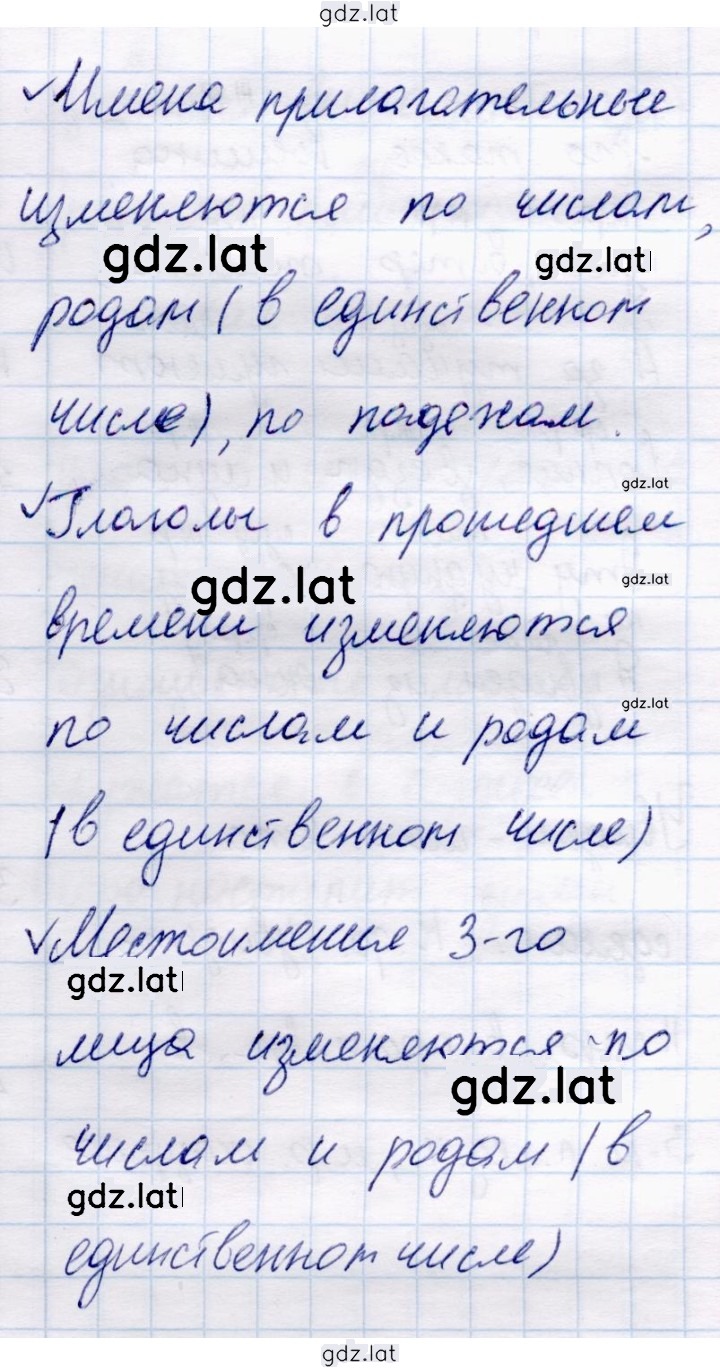 gdz.lat
✓Имена прилагательные
изменяются по числам,
gdz.lat gdz.lat
родам (в единственном
числе), по падежам.
gdz.lat
✓Глаголы в прошедшем
gdz.lat gdz.lat
времени изменяются
gdz.lat
по числам и родам
(в единственном числе)
✓Местоимения 3-го
gdz.lat
лица изменяются по
gdz.lat
числам и родам (в
gdz.lat
единственном числе)
gdz.lat